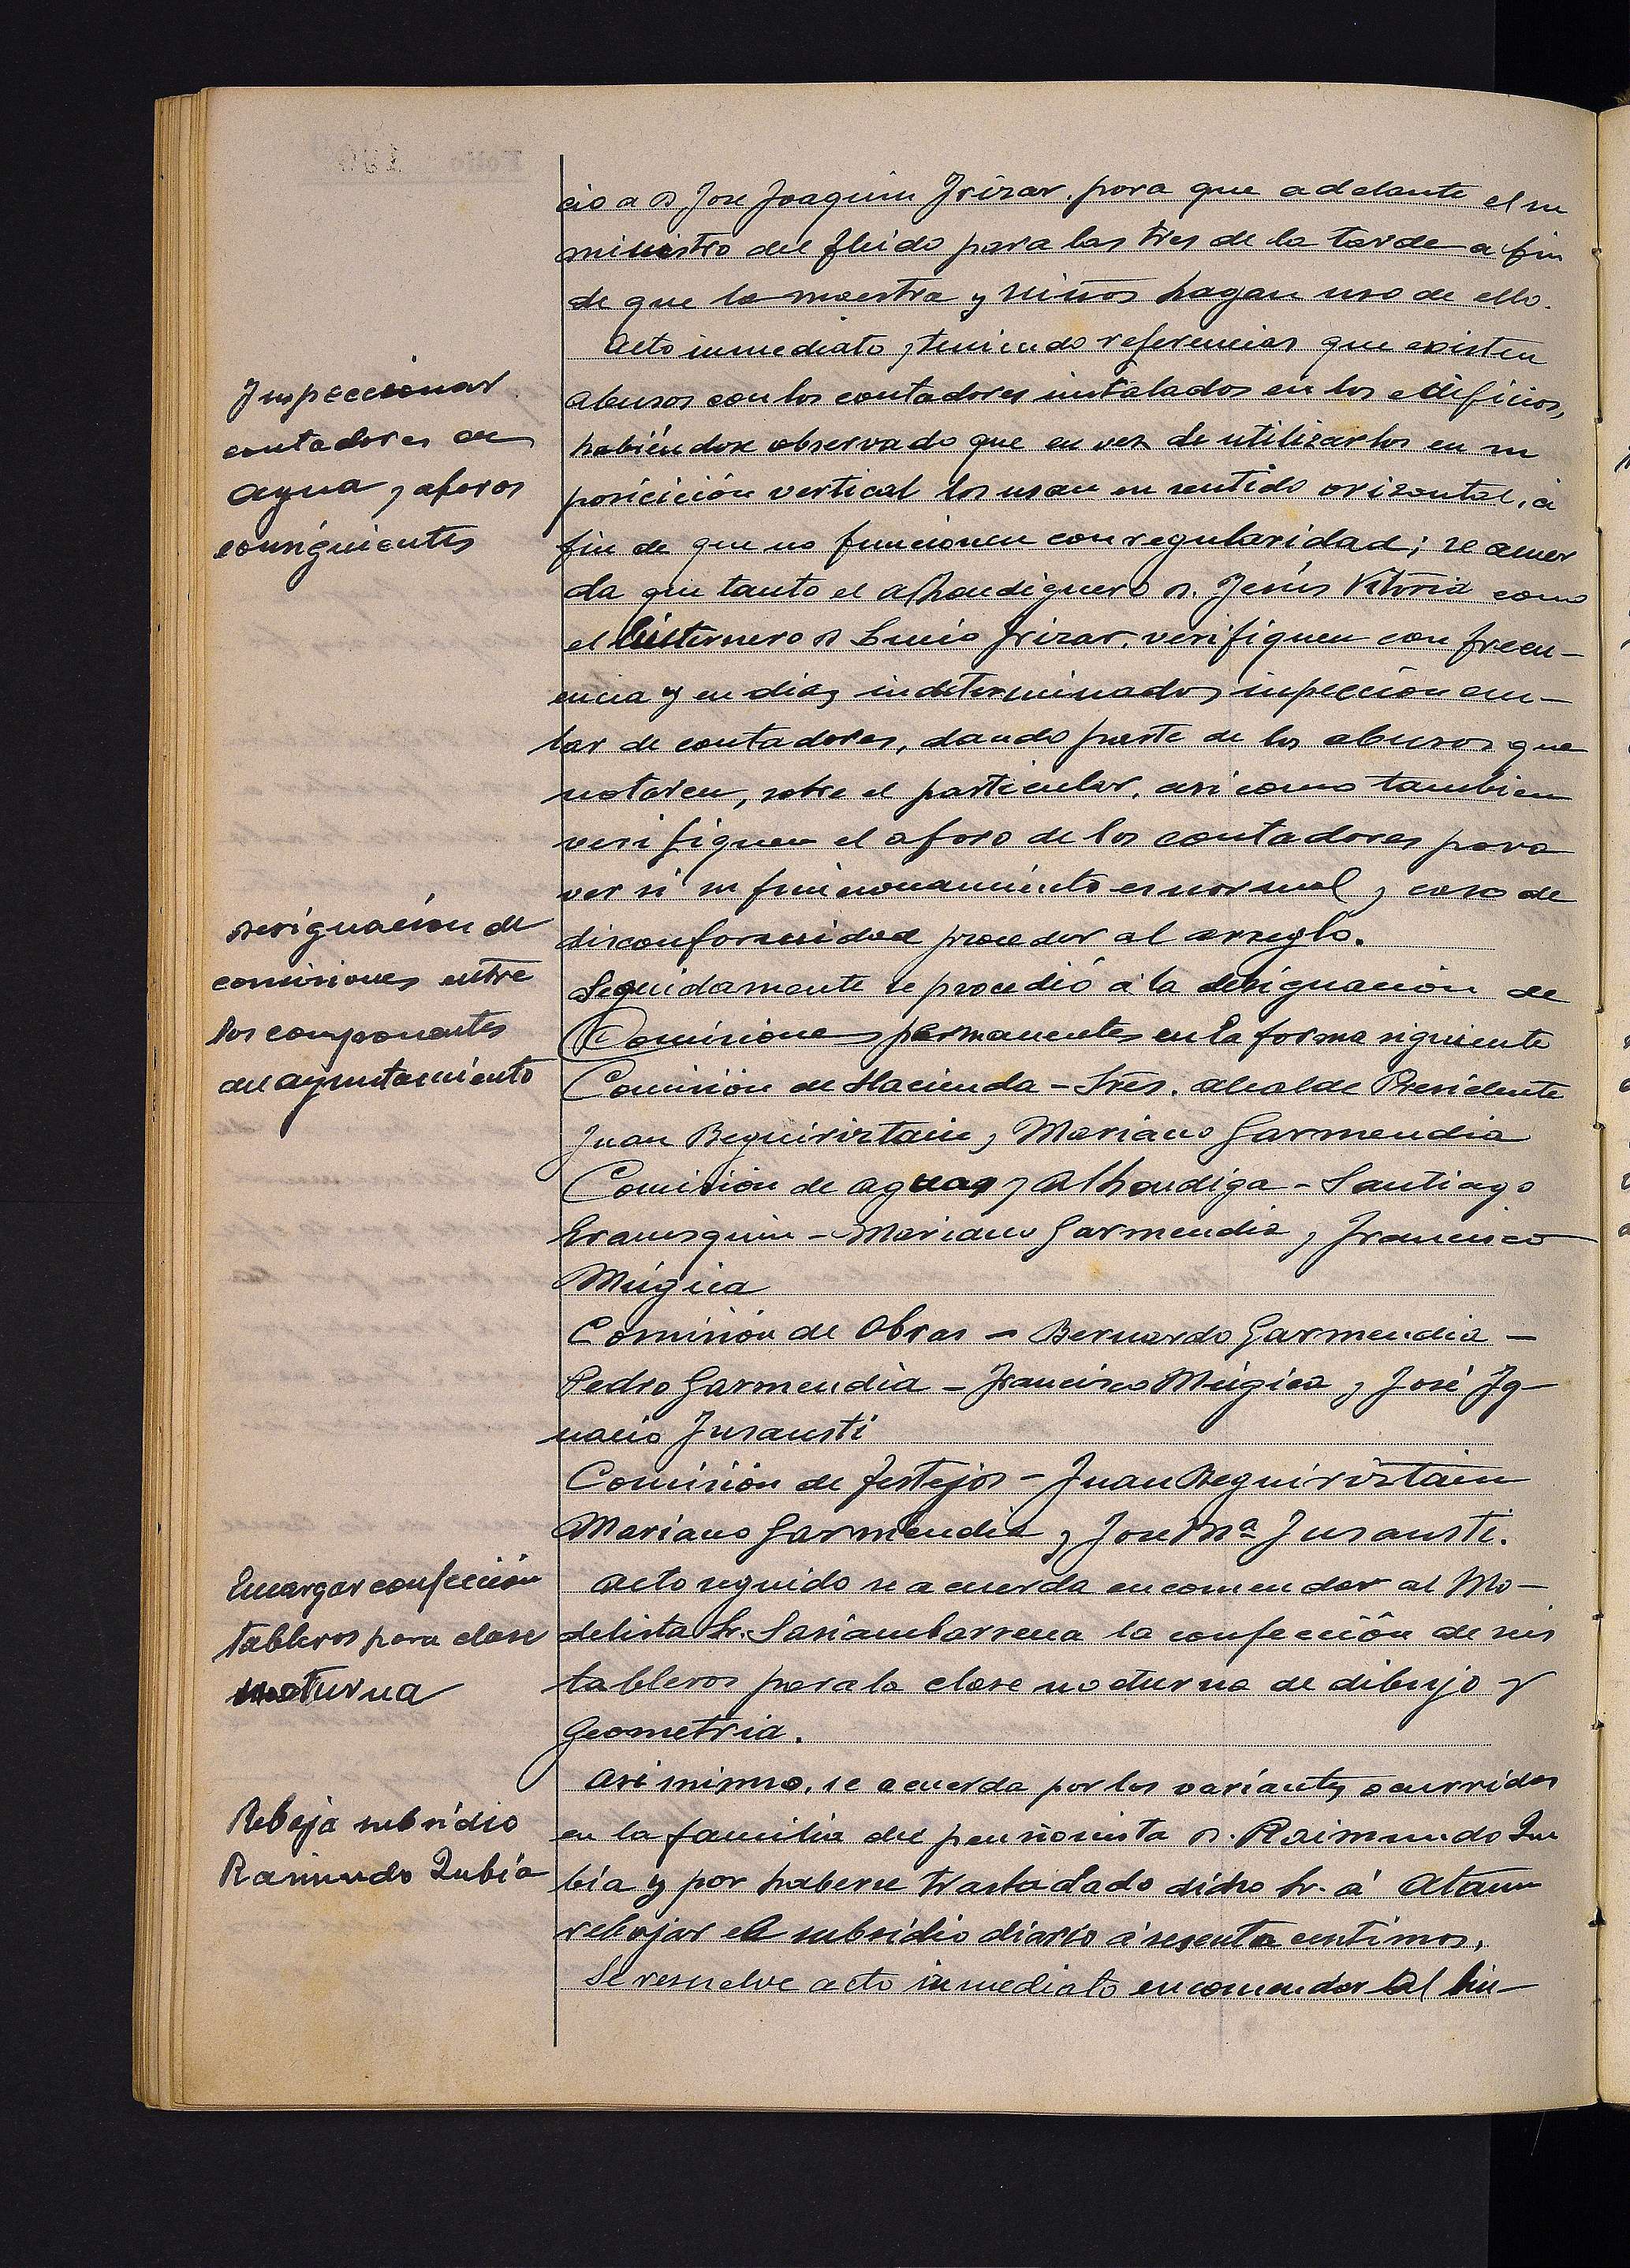 cio a D. Jose Joaquin Irizar, para que adelante el su
ministro del fluido para las tres de la tarde a fin
de que la maestra y niños hagan uso de ello.
Inspeccionar
contadores de
agua y aforos
consiguientes
Acto inmediato, teniendo referencias que existen
abusos con los contadores instalados en los edificios,
habiéndose observado que en vez de utilizarlos en su
posicición vertical los usan en sentido orizontal, á
fin de que no funcionen con regularidad; se acuer
da que tanto el alhondiguero D. Jesús Vitoria como
el D. Lucio Irizar, verifiquen con frecu-
encia y en dias indeterminados inspección ocu-
lar de contadores, dando parte de los abusos que
notaren, sobre el particular, asi como tambien
verifiquen el aforo de los contadores para
ver si su funcionamiento es normal y caso de
disconformidad proceder al arreglo.
Designación de
comisiones entre
los componentes
del ayuntamiento
Seguidamente se procedió á la designación de
Comisiones permanentes en la forma siguiente
Comisión de Hacienda - Sres. Alcalde Presidente
Juan Beguiristain y Mariano Garmendia
Comisión de aguas y Alhondiga - Santiago
Erauzquin - Mariano Garmendia y Francisco
Múgica
Comisión de Obras - Bernardo Garmendia -
Pedro Garmendia - Francisco Múgica y José Ig-
nacio Insausti
Comisión de festejos - Juan Beguiristain
Mariano Garmendia y Jose Mª Insausti.
Encargar confección
tableros para clase
nocturna
Acto seguido se acuerda encomendar al Mo-
delista Sr. Sasiambarrena la confección de seis
tableros para la clase nocturna de dibujo y
Geometria.
Rebaja subsidio
Raimundo Zubia
Asi mismo, se acuerda por los variantes ocurridos
en la familia del pensionista D. Raimundo Zu
bia y por haberse trasladado dicho Sr. á Ataun
rebajar el subsidio diario á sesenta centimos.
Se resuelve acto inmediato encomendar al